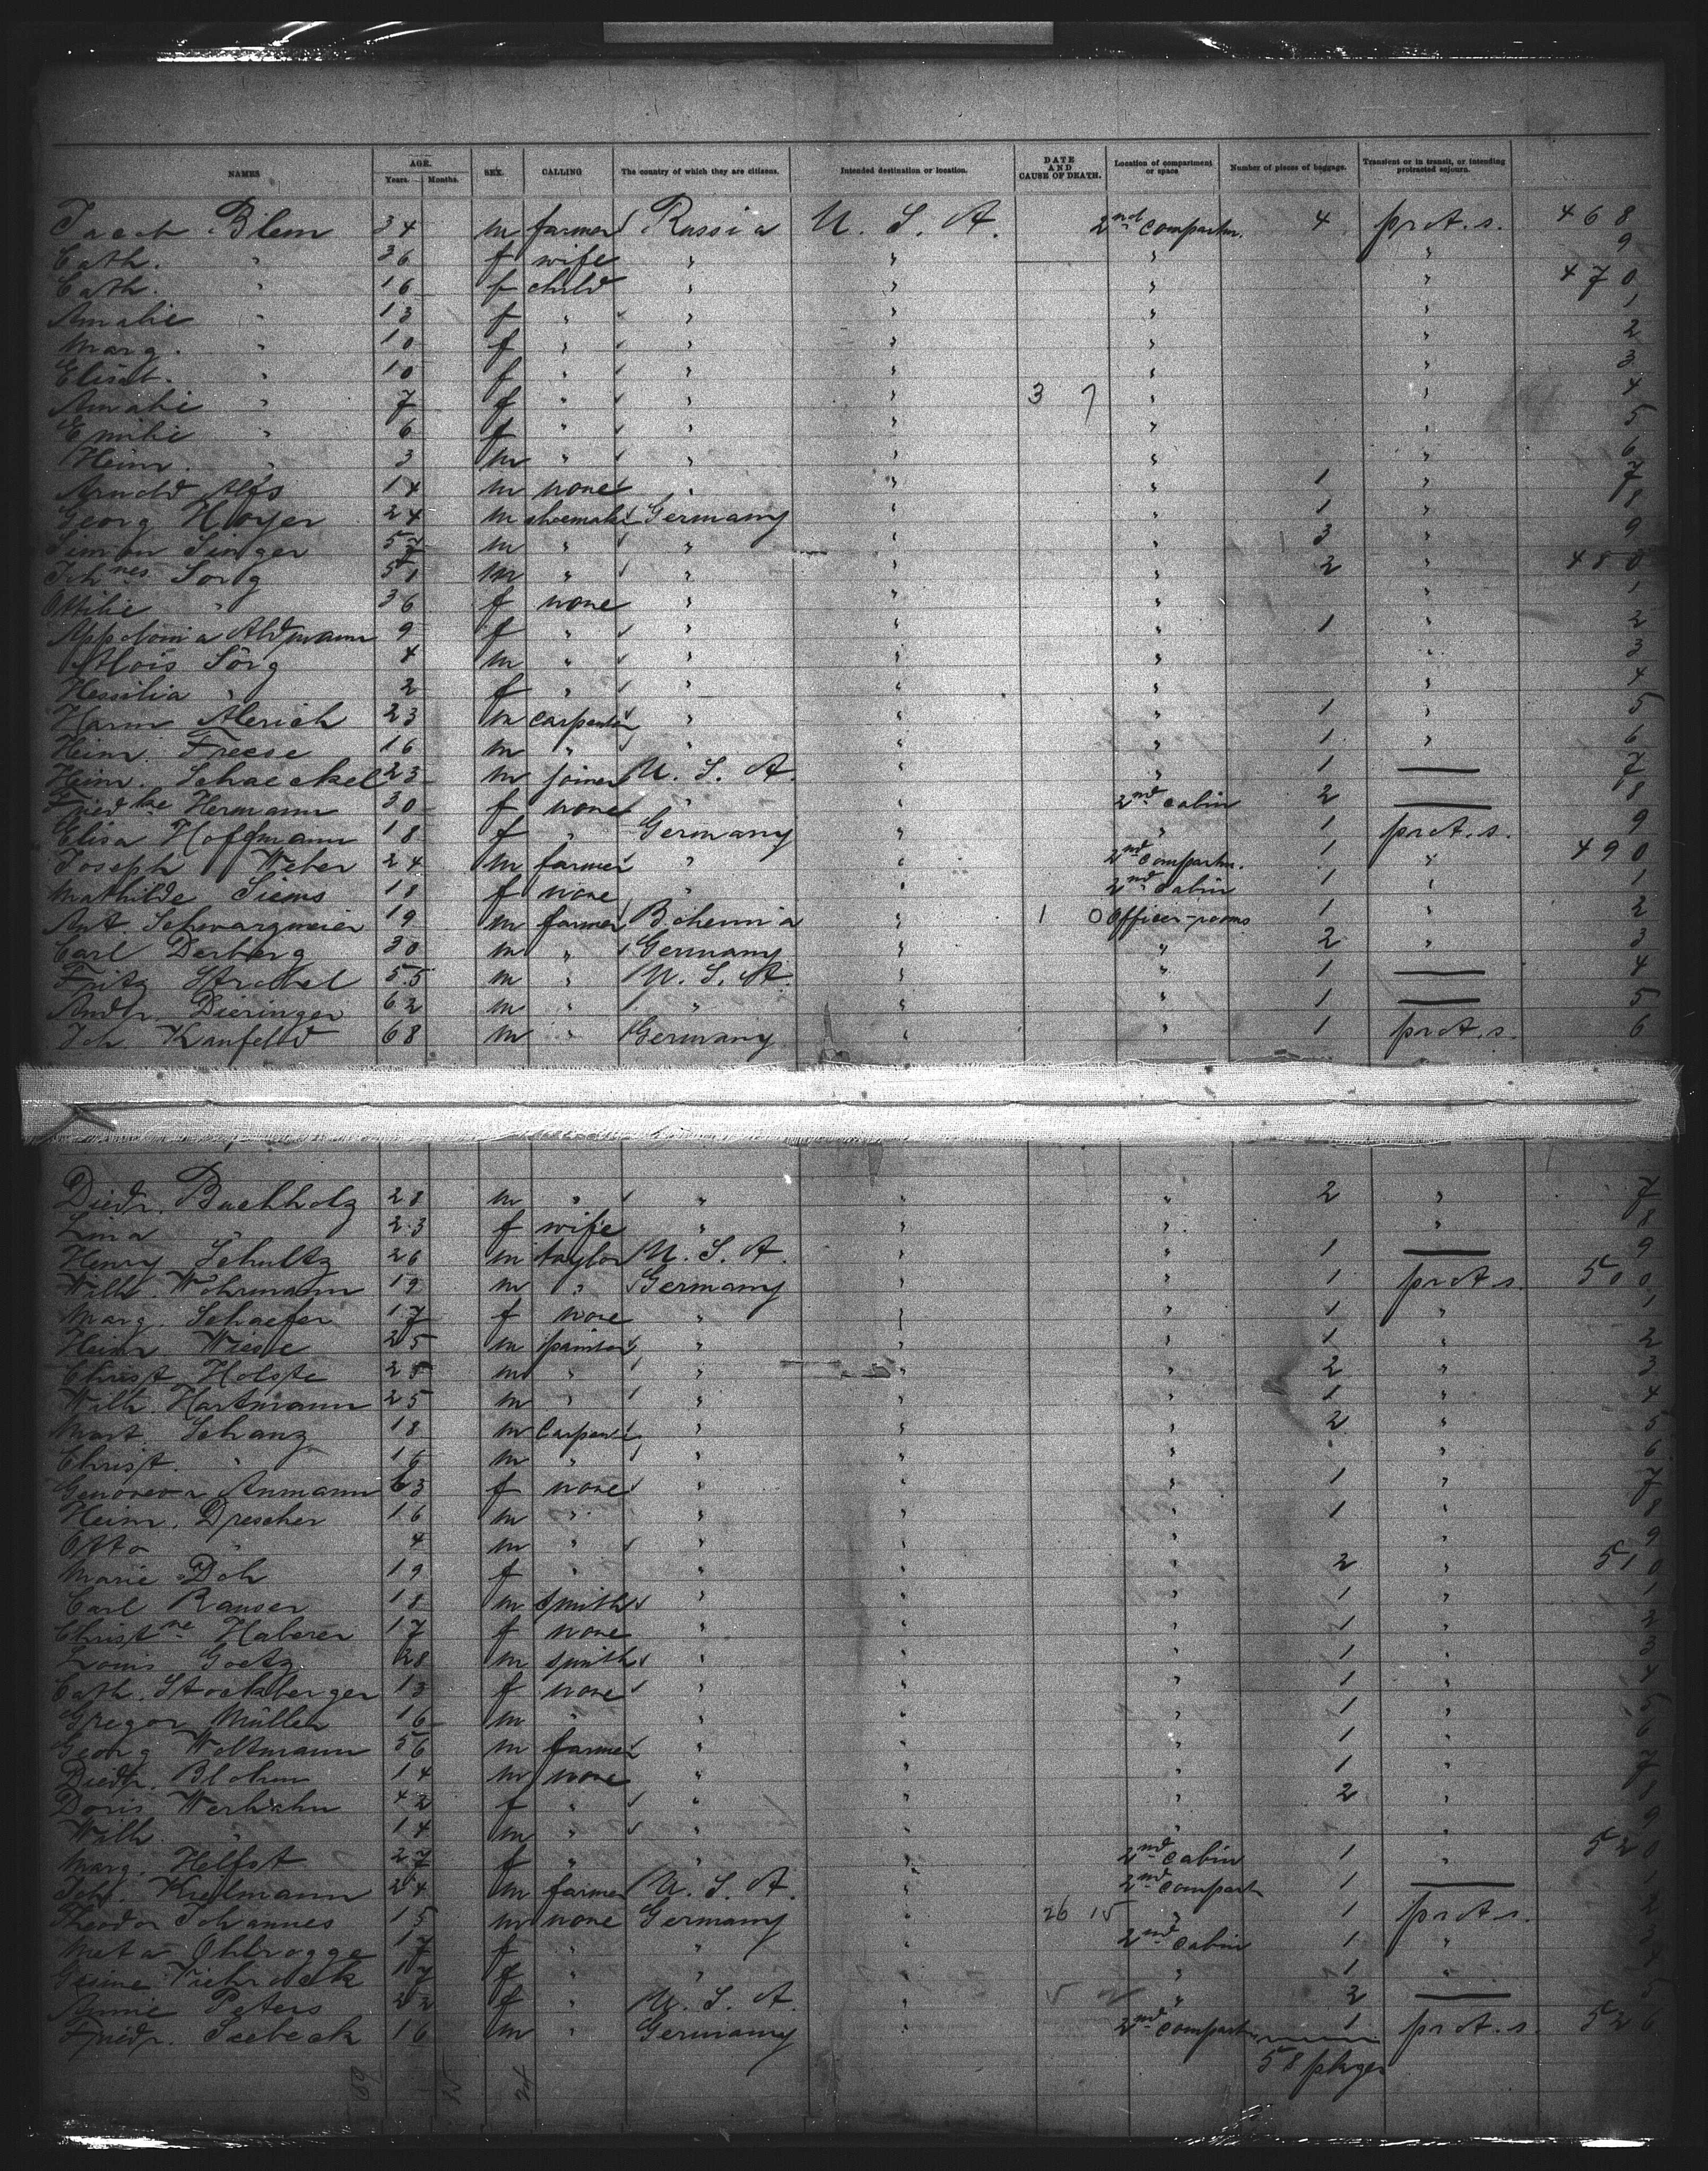 NAMES AGE. Years. Months. SEX. CALLING The country of which they are citizens. Intended destination or location. DATE AND CAUSE OF DEATH. Location of compartment or space Number of pieces of baggage. Transient or in transit, or intending protracted sojourn.
Jacob Blem 34 m farmer Russia U. S. A. 2nd compartm. 4 prot. s. 468
Cath. " 36 f wife " " " " 9
Cath. " 16 f child " " " " 470
Amalie " 13 f " " " " " 1
Marg. " 10 f " " " " " 2
Elisab. " 10 f " " " " " 3
Amalie " 7 f " " " 3 7 " " 4
Emilie " 6 f " " " " " 5
Heinr. " 3 m " " " " " 6
Arnold Alfs 14 m none " " " 1 " 7
Georg Hoyer 24 m shoemak Germany " " 1 " 8
Simon Singer 52 m " " " " 3 " 9
Johnes Sorg 51 m " " " " 2 " 480
Ottilie " 36 f none " " " " 1
Appolonia Aldmann 9 f " " " " 1 " 2
Alois Sorg 4 m " " " " " 3
Hessilia " 2 f " " " " " 4
Harm Alerich 23 m carpenter " " " 1 " 5
Heinr. Freese 16 m " " " " 1 " 6
Heinr. Schaeckel 23 m joiner U. S. A. " " 1 — 7
Friedke Hermann 30 f none " " 2nd cabin 2 — 8
Elisa Hoffmann 18 f " Germany " " 1 prot. s. 9
Joseph Weber 24 m farmer " " 2nd compartm. 1 " 490
Mathilde Siems 18 f none " " 2nd cabin 1 " 1
Ant. Schwarzmeier 19 m farmer Bohemia " 1 0 Officer-rooms 1 " 2
Carl Derberg 30 m " Germany " " 2 " 3
Fritz Strobel 55 m " U. S. A. " " 1 — 4
Andr. Dieringer 62 m " " " " 1 — 5
Joh. Kanfeld 68 m " Germany " " 1 prot. s. 6
Diedr. Buchholz 28 m " " " " 2 " 7
Lina " 23 f wife " " " " 8
Henry Schultz 26 m taylor U. S. A. " " 1 — 9
Wilh. Wohrmann 19 m " Germany " " 1 prot. s. 500
Marg. Schaefer 17 f none " " " 1 " 1
Heinr. Wiese 25 m painter " " " 1 " 2
Christ. Holste 25 m " " " " 2 " 3
Wilh. Hartmann 25 m " " " " 1 " 4
Mart. Schanz 18 m Carpent " " " 2 " 5
Christ. " 16 m " " " " " 6
Genoveva Anmann 63 f none " " " 1 " 7
Heinr. Drescher 16 m " " " " 1 " 8
Otto " 4 m " " " " " 9
Marie Doh 19 f " " " " 2 " 510
Carl Rauser 18 m smith " " " 1 " 1
Christne Haberer 17 f none " " " 1 " 2
Louis Goetz 28 m smith " " " 1 " 3
Cath. Stockberger 13 f none " " " 1 " 4
Gregor Müller 16 m " " " " 1 " 5
Georg Woltmann 56 m farmer " " " 1 " 6
Diedr. Blohm 14 m none " " " 1 " 7
Doris Werhahn 42 f " " " " 2 " 8
Wilh. " 14 m " " " " " 9
Marg. Helfst 27 f " " " 2nd cabin 1 " 520
Joh. Kielmann 24 m farmer U. S. A. " 2nd compart 1 — 1
Theodor Johannes 15 m none Germany " 26 15 " 1 prot. s. 2
Meta Ohlrogge 17 f " " " 2nd cabin 1 " 3
Gesine Viebrock 17 f " " " " 1 " 4
Annie Peters 22 f " U. S. A. " " 2 — 5
Friedr. Seebeck 16 m " Germany " 2nd compartm 1 prot. s. 526
58 pkges